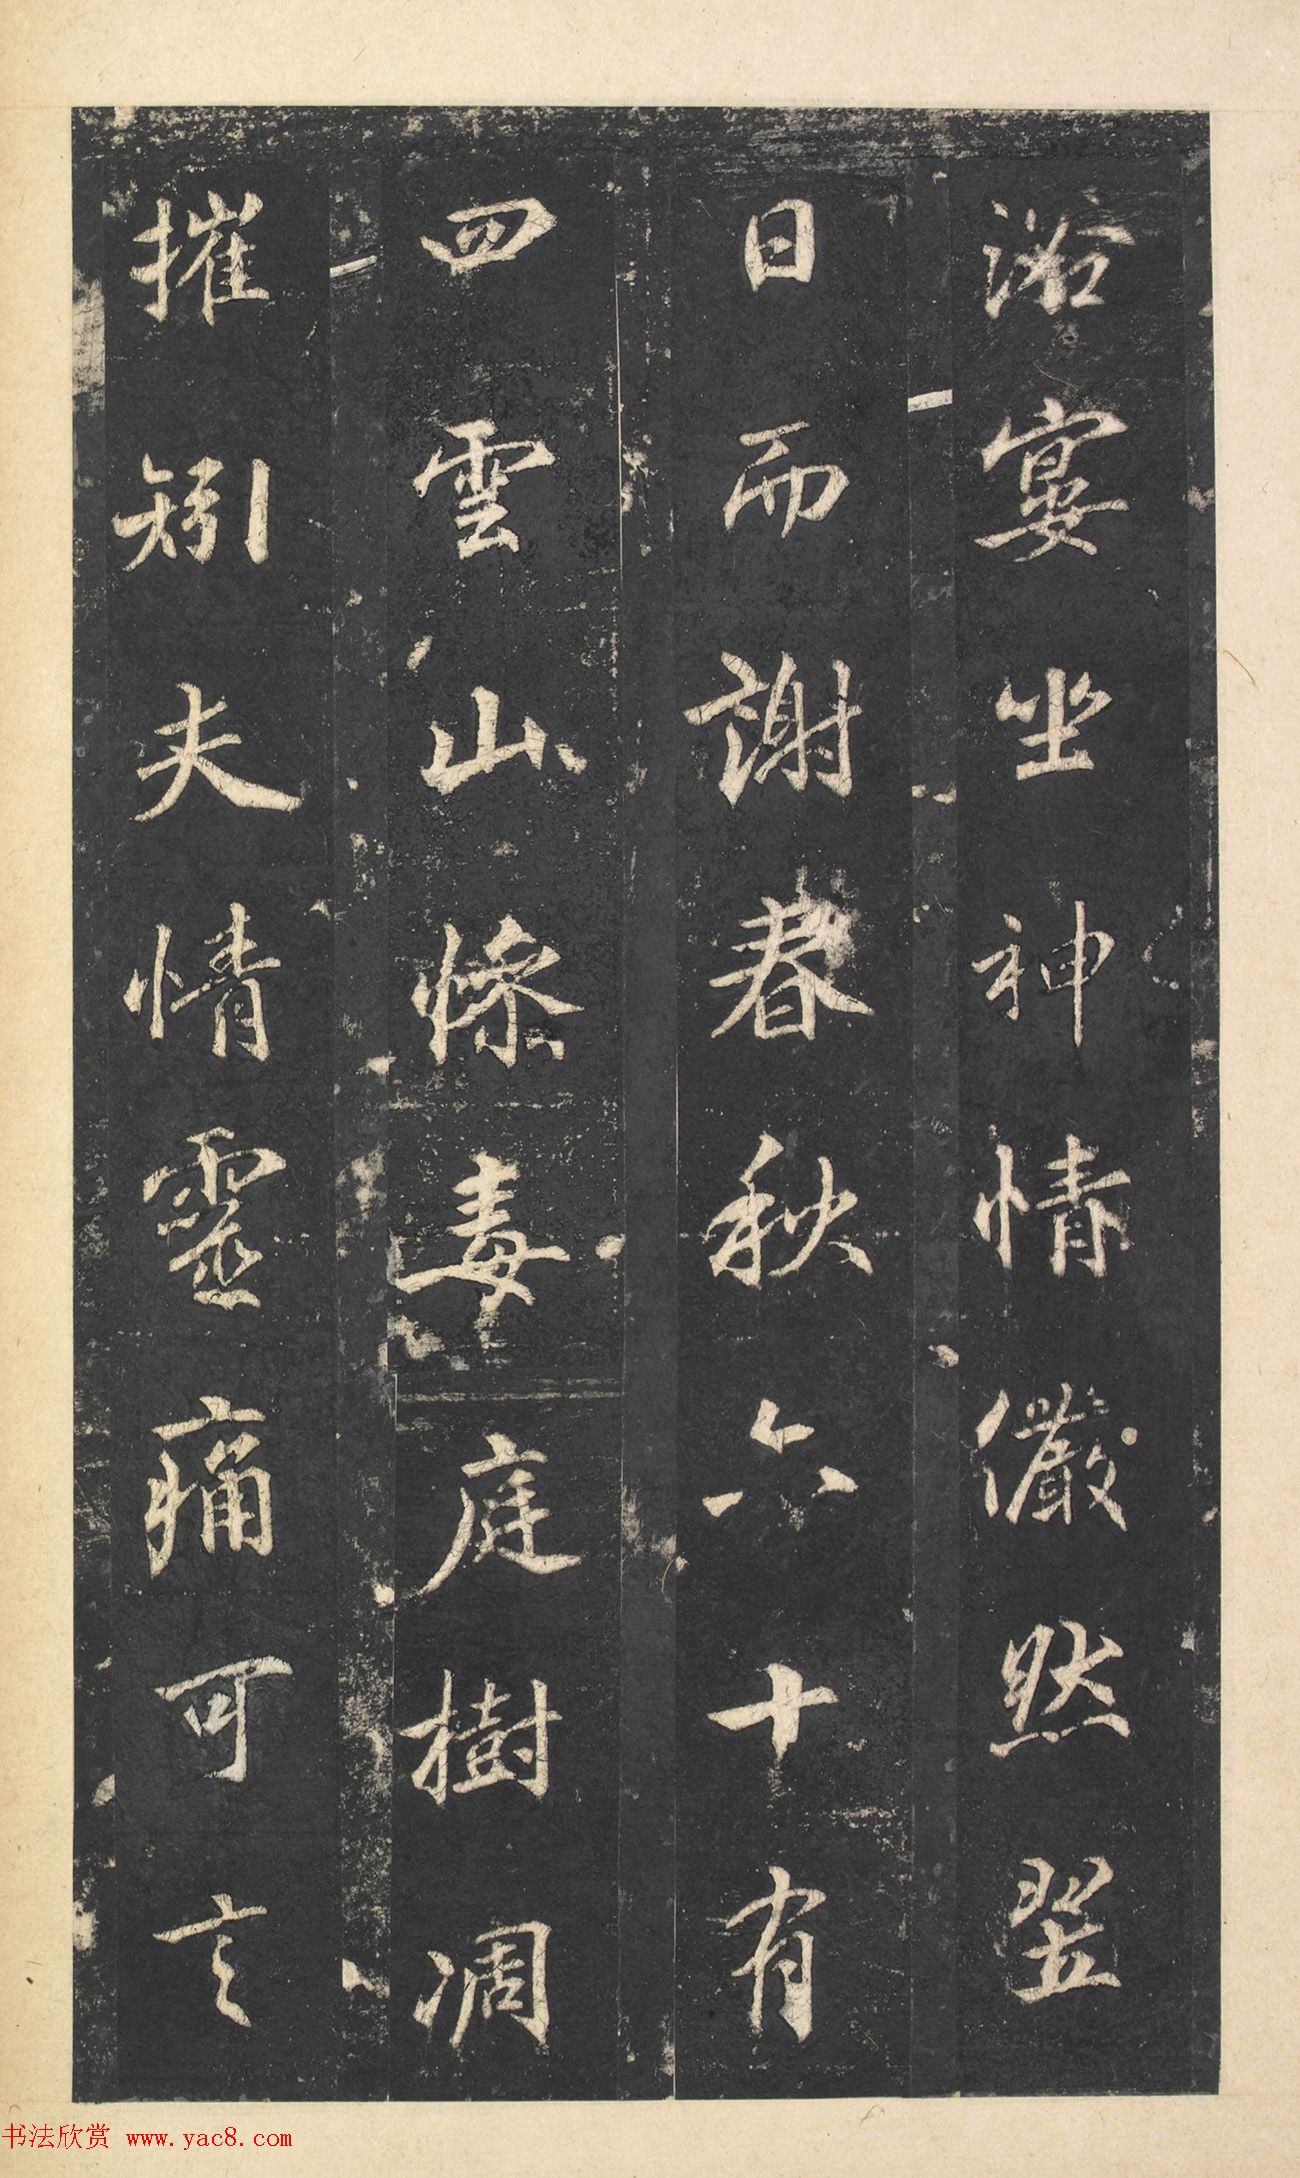 浴宴坐神情儼然翌
日而謝春秋六十有
四雲山慘毒庭樹凋
摧矧夫情靈痛可言
书法欣赏 www.yac8.com